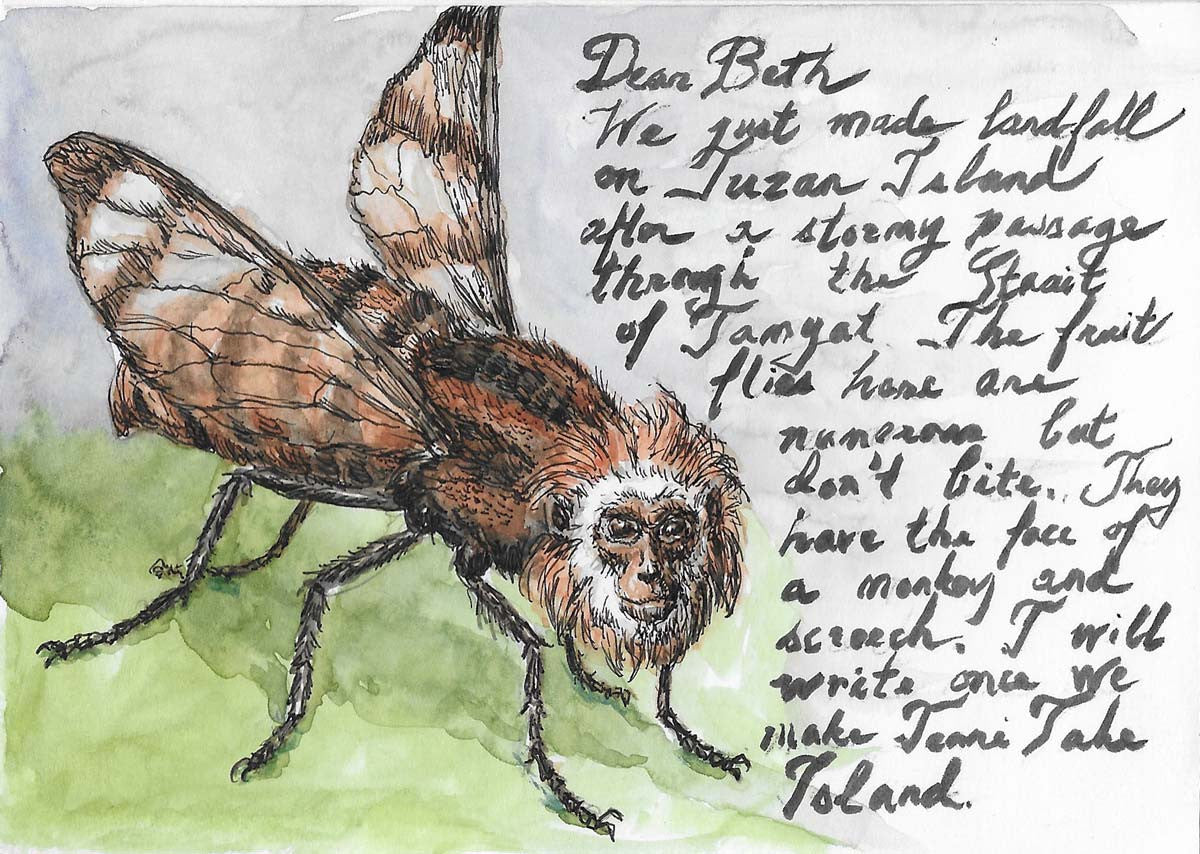 Dear Beth
We just made landfall
on Tuzan Island
after a stormy passage
through the Strait
of Tamyat The fruit
flies here are
numerous but
don't bite. They
have the face of
a monkey and
screech. I will
write once we
make Island.